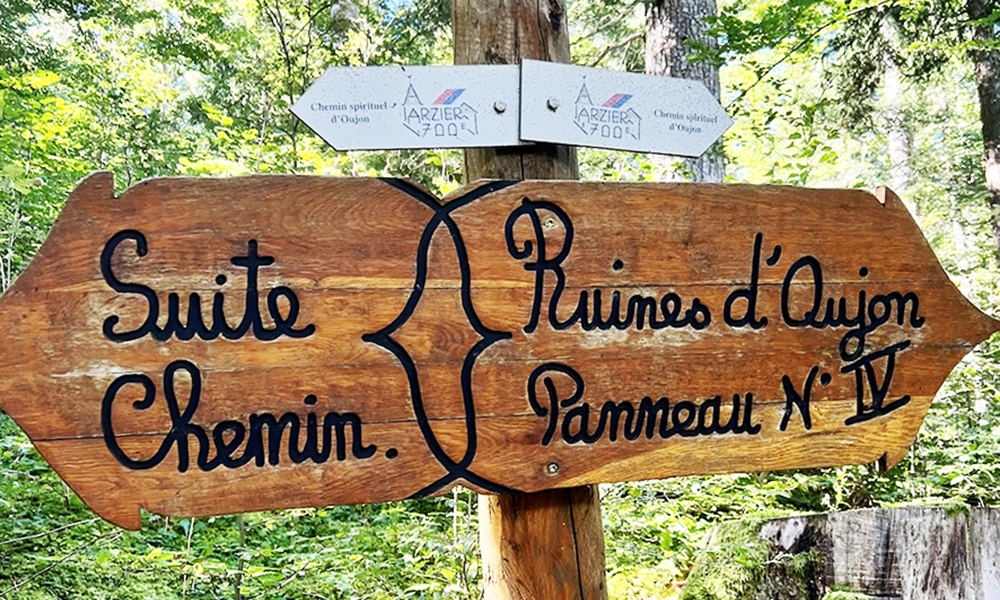 Chemin spirituel
d'Oujon
ARZIER
700E
Chemin spirituel
d'Oujon
ARZIER
700E
Suite
Chemin.
Ruines d'Oujon
Panneau N° IV